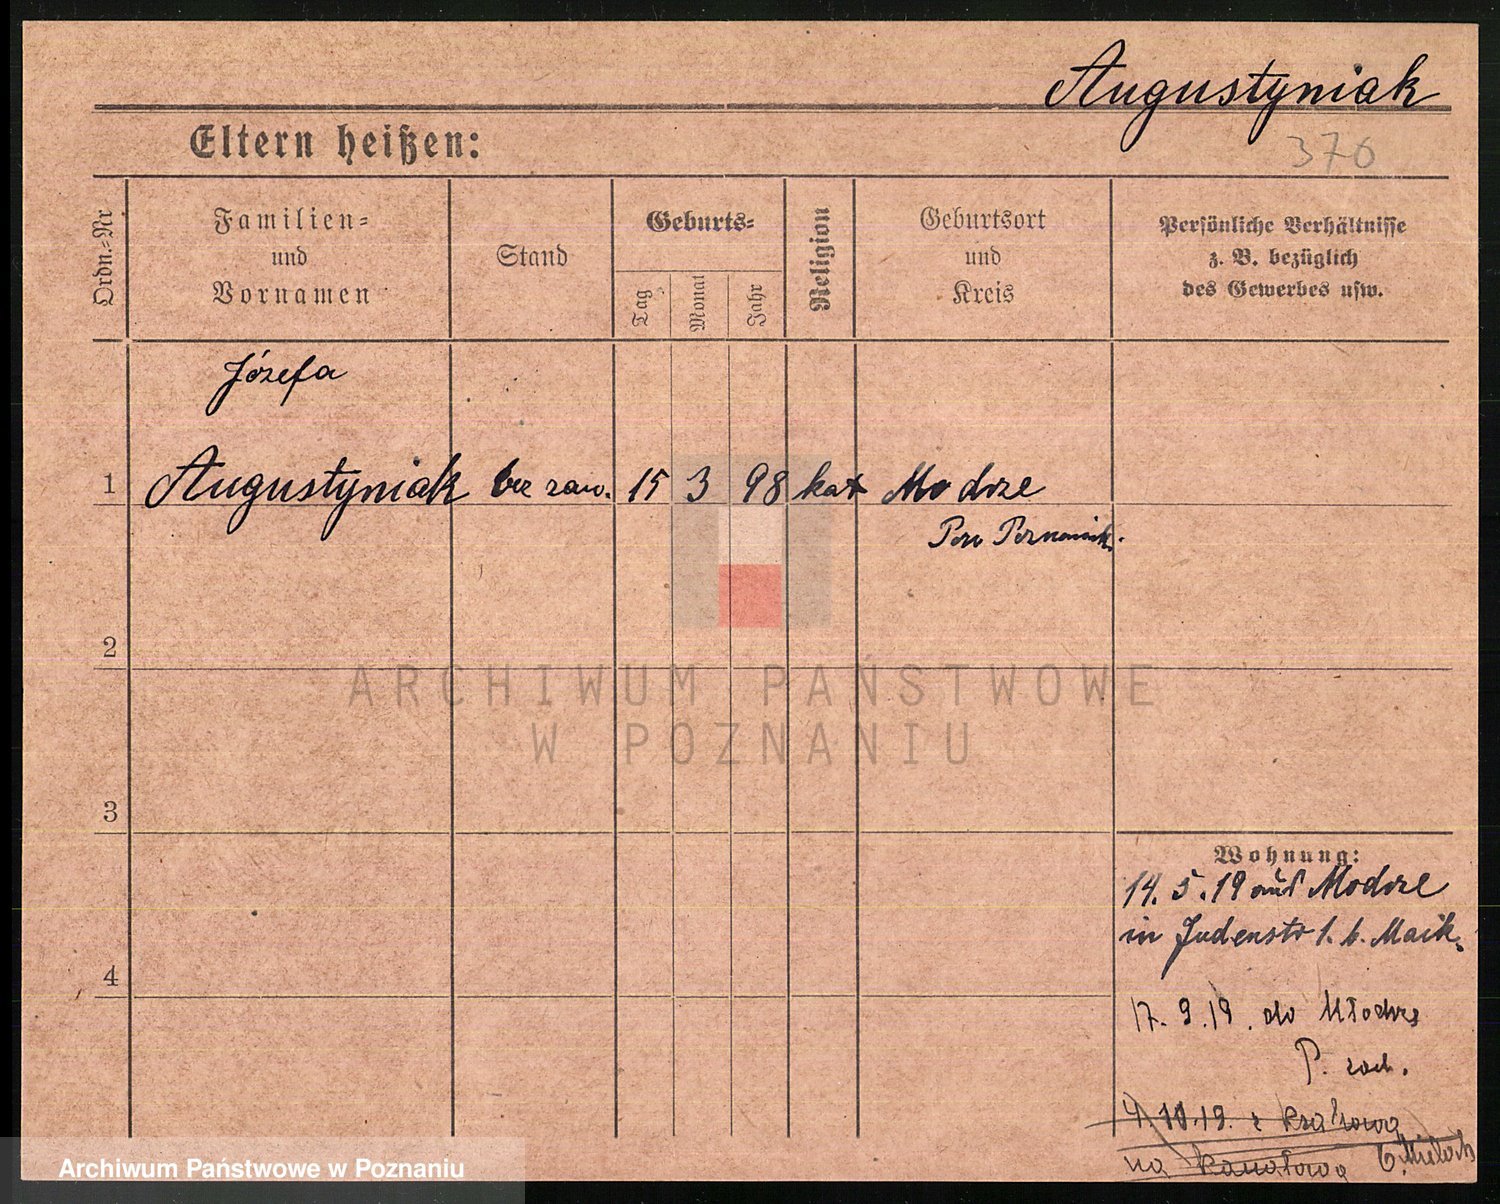 Augustyniak
376
Eltern heißen:
Ordn.-Nr
Familien-
und
Vornamen
Stand
Geburts-
Tag
Monat
Jahr
Religion
Geburtsort
und
Kreis
Persönliche Verhältnisse
z. B. bezüglich
des Gewerbes usw.
Józefa
1 Augustyniak bez zaw. 15 3 98 kat Modrze
Pow
2
3
4
Wohnung:
14. 5. 19 aus Modrze
in Judenstr 1. b. Maik.
17. 9. 19. do
P. zach.
4 10 19. z
na Kanałową
ARCHIWUM PAŃSTWOWE
W POZNANIU
Archiwum Państwowe w Poznaniu